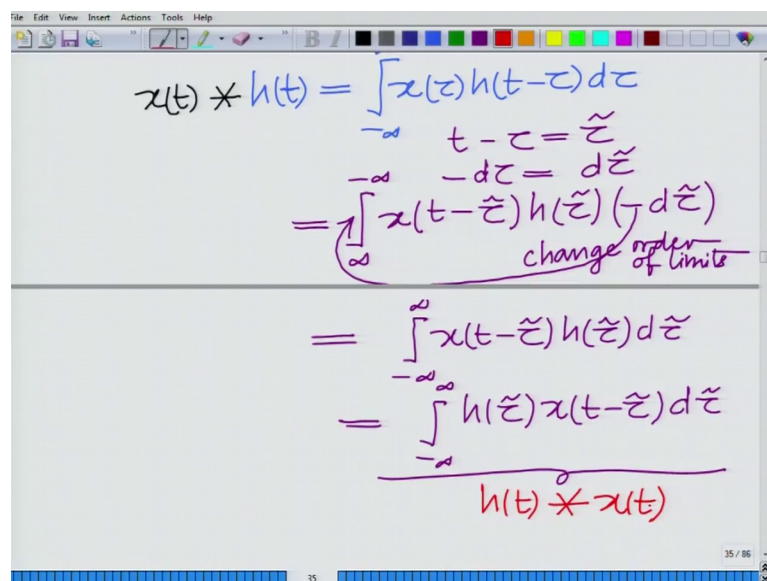 File Edit View Insert Actions Tools Help
B I
x(t) * h(t) = ∫_{-∞} x(τ) h(t-τ) dτ
t - τ = τ̃
-dτ = dτ̃
= ∫_{∞}^{-∞} x(t-τ̃) h(τ̃) (-dτ̃)
change order of limits
= ∫_{-∞}^{∞} x(t-τ̃) h(τ̃) dτ̃
= ∫_{-∞}^{∞} h(τ̃) x(t-τ̃) dτ̃
h(t) * x(t)
35 / 86
35